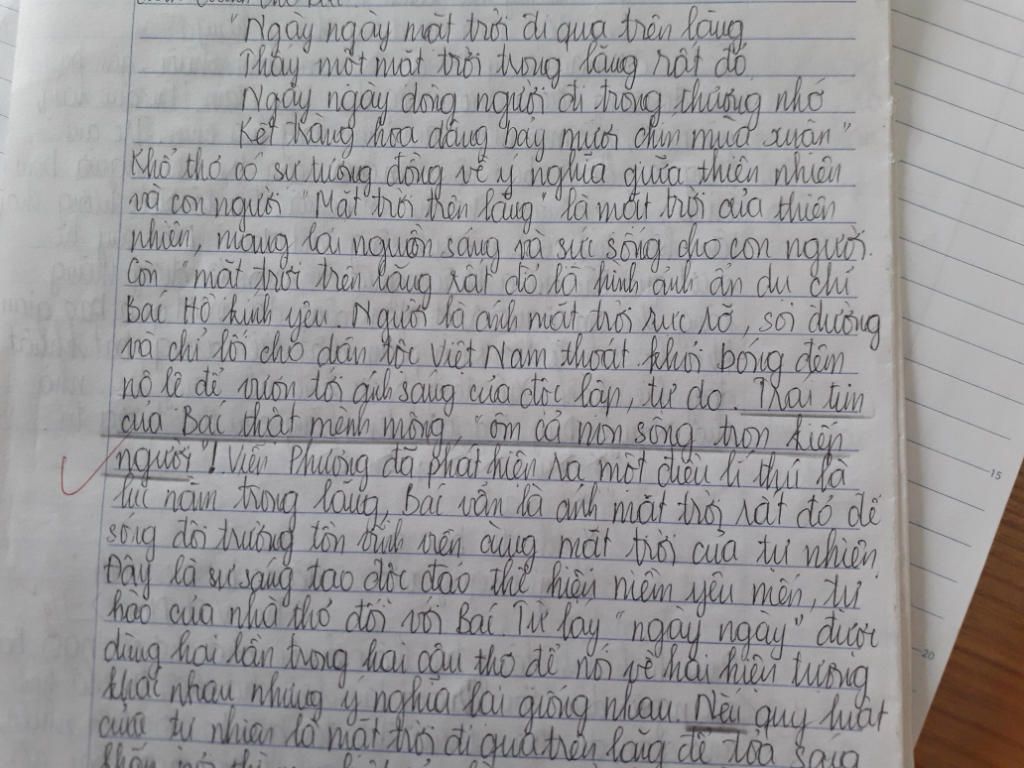 "Ngày ngày mặt trời đi qua trên lăng
Thấy một mặt trời trong lăng rất đỏ
Ngày ngày dòng người đi trong thương nhớ
Kết tràng hoa dâng bảy mươi chín mùa xuân"
Khổ thơ có sự tương đồng về ý nghĩa giữa thiên nhiên
và con người "Mặt trời trên lăng" là mặt trời của thiên
nhiên, mang lại nguồn sáng và sức sống cho con người.
Còn "mặt trời trên lăng rất đỏ là hình ảnh ẩn dụ chỉ
Bác Hồ kính yêu. Người là ánh mặt trời rực rỡ, soi đường
và chỉ lối cho dân tộc Việt Nam thoát khỏi bóng đêm
nô lệ để vươn tới ánh sáng của độc lập, tự do. Trái tim
của Bác thật mênh mông, "ôm cả non sông trọn kiếp
người"! Viễn Phương đã phát hiện ra một điều lí thú là
lúc nằm trong lăng, Bác vẫn là ánh mặt trời rất đỏ để
sống đời trường tồn vĩnh viễn cùng mặt trời của tự nhiên.
Đây là sự sáng tạo độc đáo thể hiện niềm yêu mến, tự
hào của nhà thơ đối với Bác. Từ láy "ngày ngày" được
dùng hai lần trong hai câu thơ để nói về hai hiện tượng
khác nhau nhưng ý nghĩa lại giống nhau. Nếu quy luật
của tự nhiên là mặt trời đi qua trên lăng để tỏa sáng
15
20